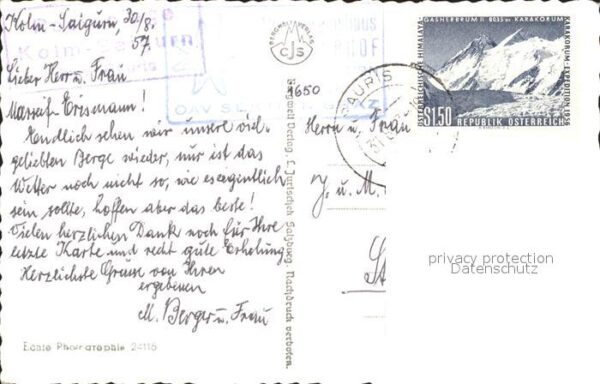 Kolm-Saigurn, 30/8.
57.
Kolm-Saigurn
Lieber Herr u. Frau
Erismann!
Endlich sehen wir unsere viel-
geliebten Berge wieder, nur ist das
Wetter noch nicht so, wie es eigentlich
sein sollte, hoffen aber das beste!
Vielen herzlichen Dank noch für Ihre
letzte Karte und recht gute Erholung.
Herzlichste Grüsse von Ihren
ergebenen
M. Berger u. Frau
Echte Photographie 24116
BERGWELT-VERLAG
CJS
Bergwelt Verlag, C. Jurischek Salzburg. Nachdruck verboten.
9650
Herrn u. Frau
J. u. M.
RAURIS
GASHERRUM II 8035 m KARAKORUM
ÖSTERREICHISCHE HIMALAYA
KARAKORUM-EXPEDITION 1956
S 1.50
REPUBLIK ÖSTERREICH
privacy protection
Datenschutz